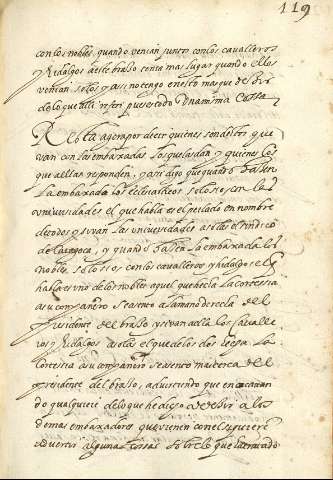 119
con los nobles, quando venian junto con los cavalleros
y Hidalgos a este brasso con tamas lugar quando ellos
venian solos y assi no tengo en esto mas que dezir
de lo que alli referi pues todo una misma cossa
Resta agora por decir quienes son de dos que
van con las embaxadas los que las dan y quienes los
que a ellas responden, y assi digo que quando hassen
la embaxada los eclesiasticos solos o con las
universidades el que habla es el perlado en nombre
de todos y si van las universidades a solas el sindico
de Caragoça, y quando hassen la embaxada los
nobles solos o con los cavalleros y hidalgos el q
habla es uno de los nobles aquel que hecha la cortessia
a su compañero se asento a la mano derecha del
Presidente del brasso y si van a ella los cavalle
ros y Hidalgos a solas el que de los dos hecha la
cortessia a su compañero se asento mas cerca del
presidente del brasso, advirtiendo que en acavan
do qualquiere de lo que he dicho de dessir a los
demas embaxadores que vienen con el si quieren
advertir alguna cossa sobre lo que ha tratado